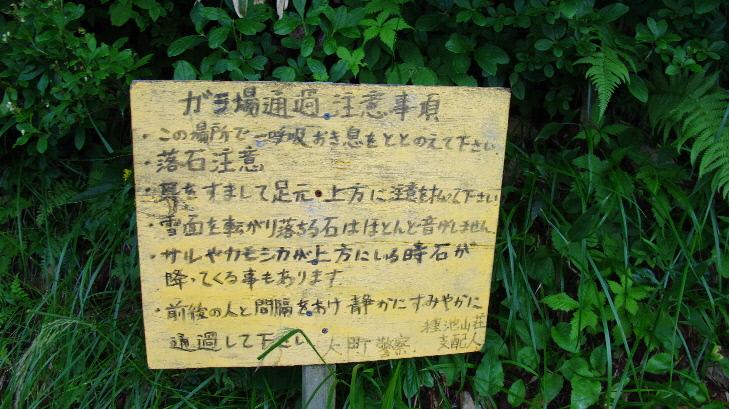 ガラ場通過 注意事項
・この場所で一呼吸おき息をととのえて下さい
・落石注意
・耳をすまして足元、上方に注意を払って下さい
・雪面を転がり落ちる石はほとんど音がしません
・サルやカモシカが上方にいる時石が
降ってくる事もあります
・前後の人と間隔をあけ 静かにすみやかに
通過して下さい
大町警察
種池山荘
支配人